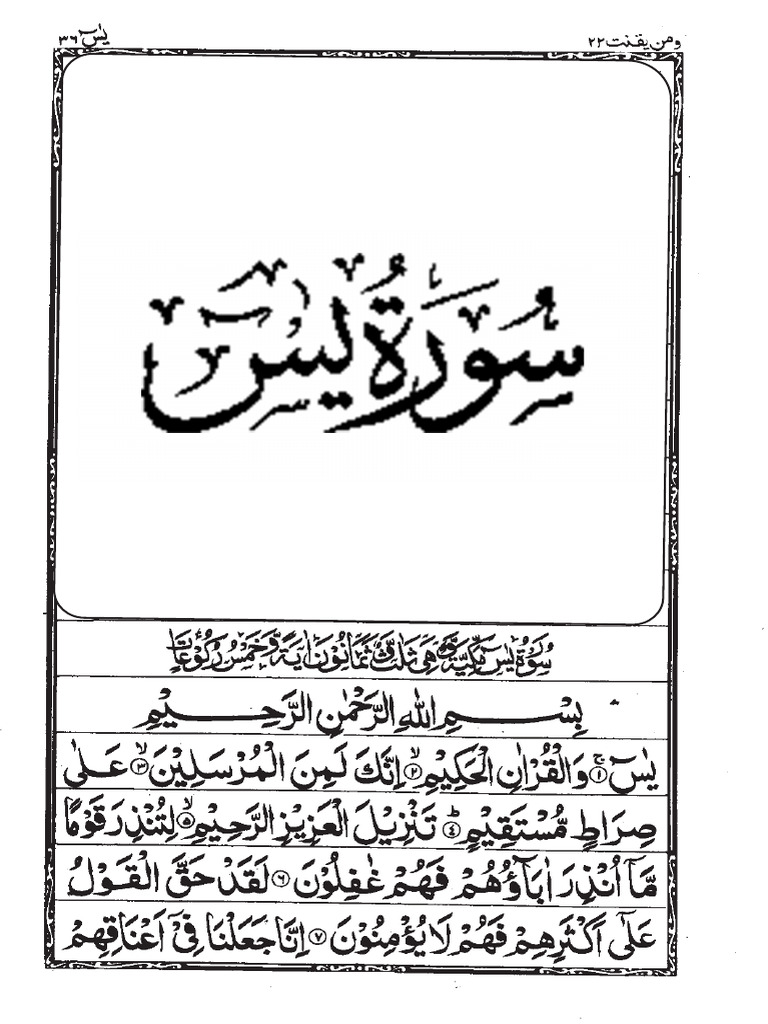 ومن یقنت ۲۲
یٰسٓ ۳۶
سُورَةُ یٰسٓ
سُوْرَةُ یٰسٓ مَكِّیَّةٌ وَّهِیَ ثَلٰثٌ وَّثَمَانُوْنَ اٰیَةً وَّخَمْسُ رُكُوْعَاتٍ
بِسْمِ اللّٰهِ الرَّحْمٰنِ الرَّحِیْمِ
یٰسٓ ۚ﴿۱﴾ وَالْقُرْاٰنِ الْحَكِیْمِ ۙ﴿۲﴾ اِنَّكَ لَمِنَ الْمُرْسَلِیْنَ ۙ﴿۳﴾ عَلٰی
صِرَاطٍ مُّسْتَقِیْمٍ ؕ﴿۴﴾ تَنْزِیْلَ الْعَزِیْزِ الرَّحِیْمِ ۙ﴿۵﴾ لِتُنْذِرَ قَوْمًا
مَّاۤ اُنْذِرَ اٰبَآؤُهُمْ فَهُمْ غٰفِلُوْنَ ﴿۶﴾ لَقَدْ حَقَّ الْقَوْلُ
عَلٰۤی اَكْثَرِهِمْ فَهُمْ لَا یُؤْمِنُوْنَ ﴿۷﴾ اِنَّا جَعَلْنَا فِیْۤ اَعْنَاقِهِمْ